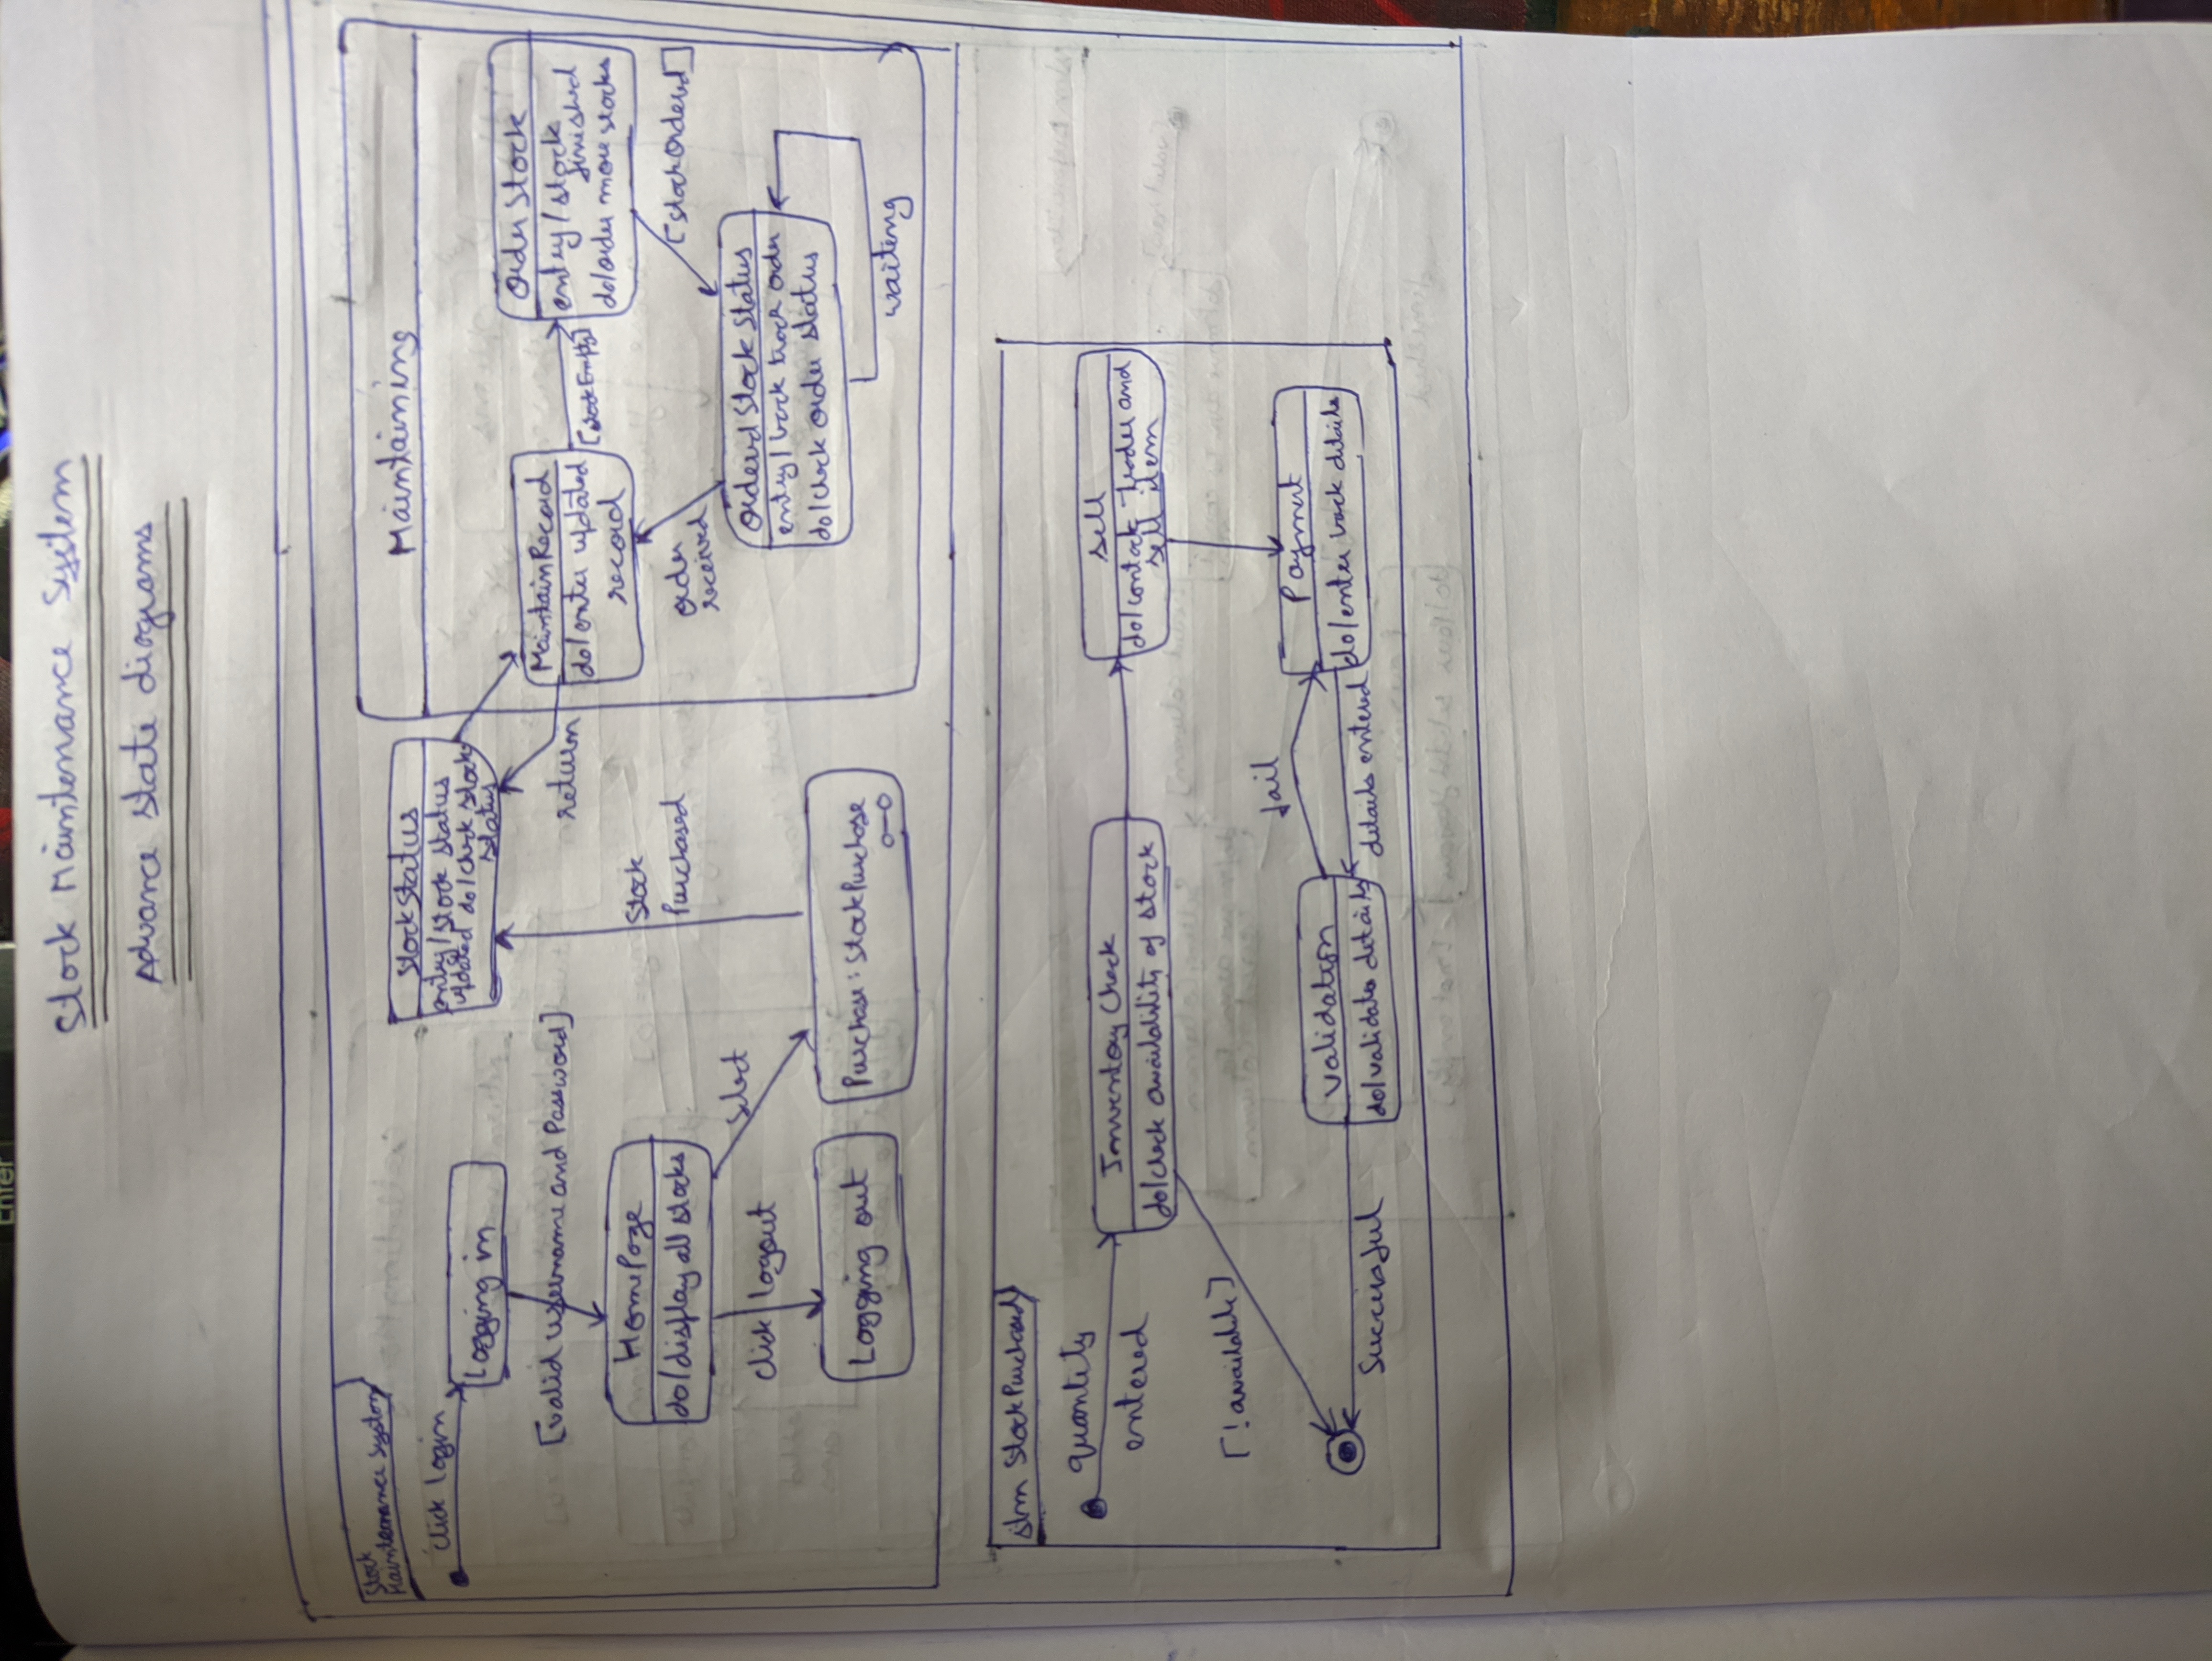 Enter
Stock Maintenance System
Advance state diagrams
Stock
Maintenance System
click login
Logging in
[valid username and Password]
HomePage
do/display all stocks
click logout
select
Logging out
Purchase: StockPurchase
StockStatus
entry/stock status
updated do/check stock
status
Stock
Purchased
return
Maintaining
MaintainRecord
do/enter updated
record
[stockEmpty]
Order Stock
entry/stock
finished
do/order more stocks
[stockOrderd]
order
received
Orderd Stock Status
entry/ track order
do/check order status
waiting
stm StockPurchased
quantity
entered
Inventory Check
do/check availability of stock
sell
do/contact trader and
sell item
[!available]
fail
Payment
do/enter details
validation
do/validate details
details entered
Successful